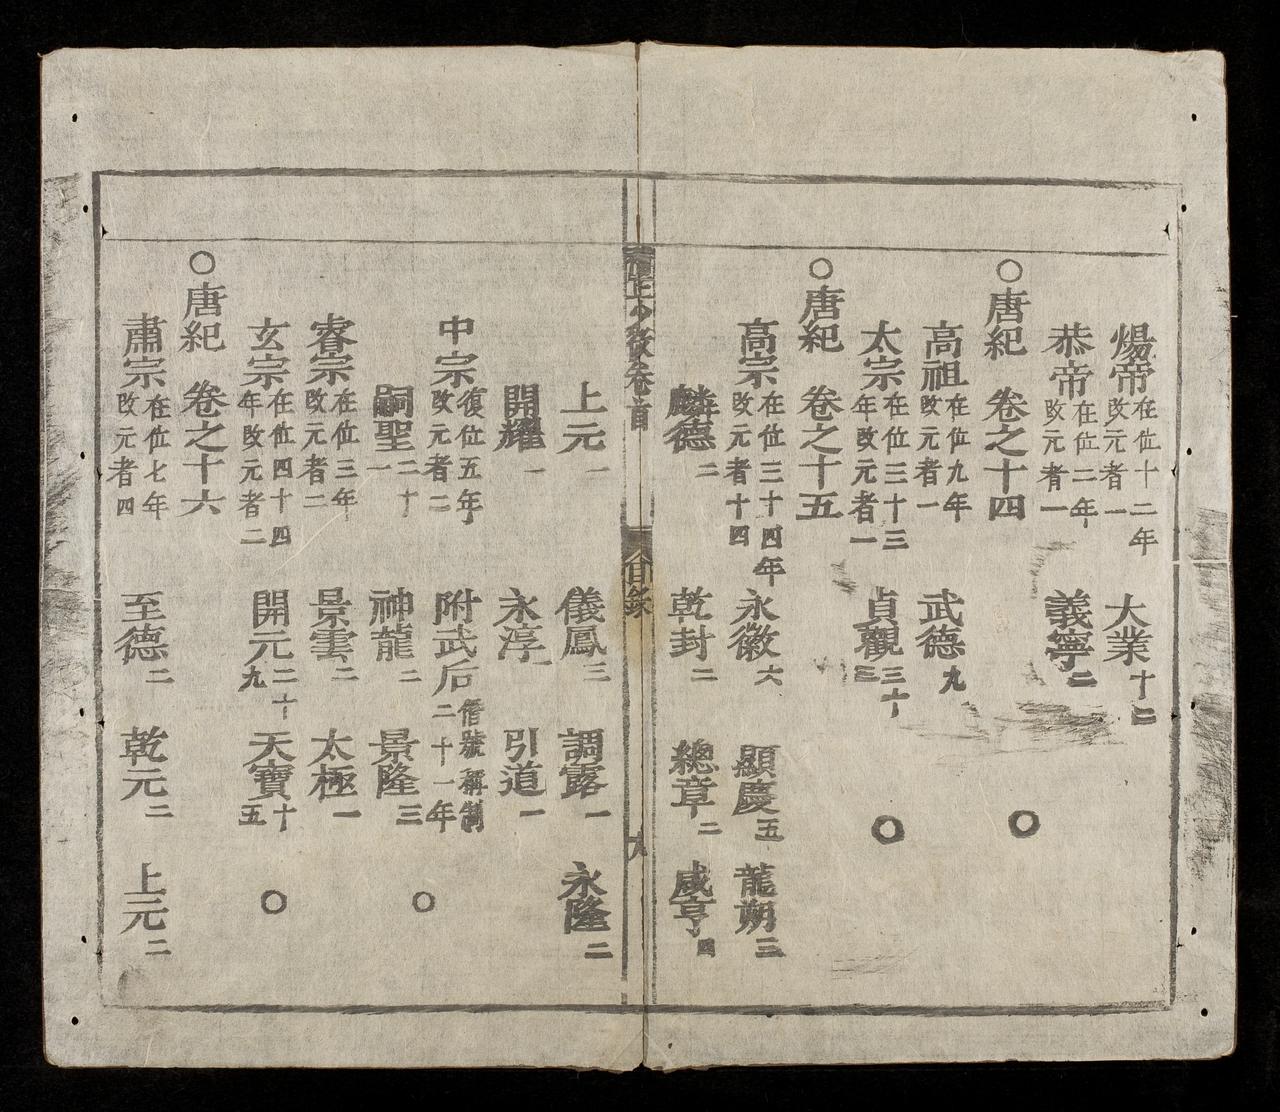 煬帝在位十二年改元者一 大業十二
恭帝在位二年改元者一 義寧二 ○
○唐紀 卷之十四
高祖在位九年改元者一 武德九
太宗在位三十三年改元者一 貞觀三十三 ○
○唐紀 卷之十五
高宗在位三十四年改元者十四 永徽六 顯慶五 龍朔三
麟德二 乾封二 總章二 咸亨四
卷首 目錄
上元一 儀鳳三 調露一 永隆二
開耀一 永淳一 引道一
中宗復位五年改元者二 附武后僭號稱制二十一年
嗣聖二十一 神龍二 景隆三 ○
睿宗在位三年改元者二 景雲二 太極一
玄宗在位四十四年改元者二 開元二十九 天寶十五 ○
○唐紀 卷之十六
肅宗在位七年改元者四 至德二 乾元二 上元二